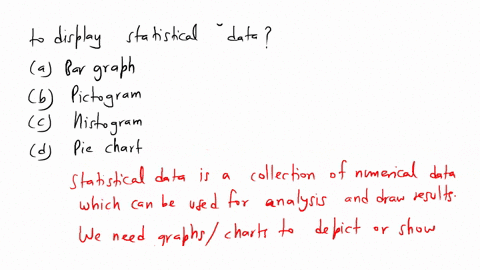 to display statistical data?
(a) Bar graph
(b) Pictogram
(c) Histogram
(d) Pie chart
Statistical data is a collection of numerical data
which can be used for analysis and draw results.
We need graphs/charts to depict or show